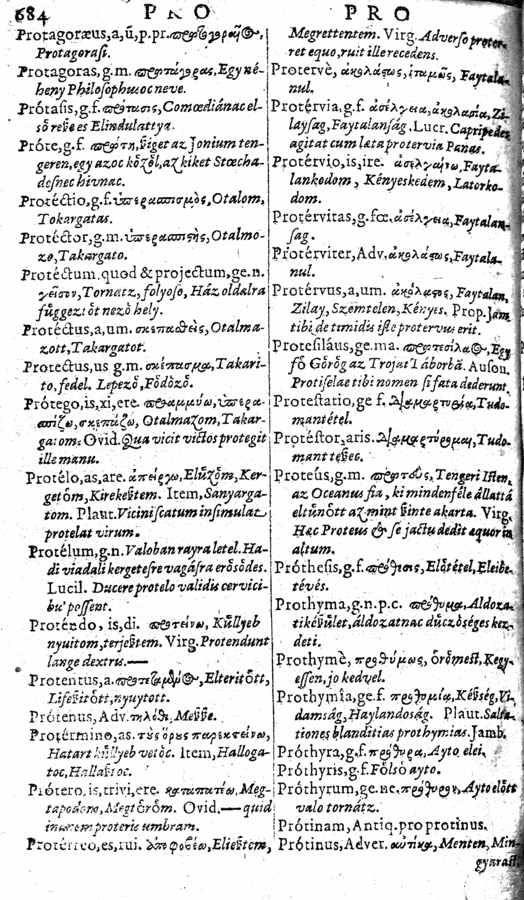 684 PRO PRO
Protagoræus,a,ũ,p.pr.
Protagorasi.
Protagoras,g.m. πρωταγόρας, Egy né-
heny Philosophusoc neve.
Prótasis,g.f. πρότασις, Comœdiánac el-
sö resze es Elindulattya.
Próte,g.f. πρώτη, sziget az Jonium ten-
geren, egy azoc közzöl, az kiket Stœcha-
desnec hivnac.
Protéctio,g.f. ὑπερασπισμὸς, Otalom,
Tokargatas.
Protéctor,g.m. ὑπερασπιστὴς, Otalmo-
zo, Takargato.
Protéctum. quod & projectum,ge.n.
γεῖσον, Tornatz, folyoso, Ház oldalra
függeztöt nezö hely.
Protéctus,a,um. σκεπασθεὶς, Otalma-
zott, Takargatot.
Protectus,us g.m. σκέπασμα, Takari-
to, fedel. Lepezö, Födözö.
Prótego,is,xi,ere.
σκεπάζω, Otalmazom, Takar-
gatom. Ovid. Qua vicit victos protegit
ille manu.
Protélo,as,are. ἀπείργω, Elüzöm, Ker-
getöm, Kirekesztem. Item, Sanyarga-
tom. Plaut. Vicini scatum insimulat
protelat virum.
Protélum,g.n. Valoban rayra letel. Ha-
di viadali kergetesre vagásra erösödes.
Lucil. Ducere protelo validis cervici-
bu' possent.
Proténdo, is,di. προτείνω, Küllyeb
nyuitom, terjesztem. Virg. Protendunt
lange dextrus.—
Protentus,a. Elteritött,
Lifesitött, nyuytott.
Prótenus, Adv. τηλόθι, Messze.
Protermino,as. τοὺς ὅρους παρεκτείνω,
Hatart küllyeb vetöc. Item, Halloga-
toc, Hallasztoc.
Prótero,is,trivi,ere. καταπατέω, Meg-
tapodom, Megtöröm. Ovid. — quid
inanem proteris umbram.
Protérreo,es,rui. ἀποφοβέω, Eliesztem,
Megrettentem. Virg. Adverso proter-
ret equo, ruit ille recedens.
Protervè, ἀκολάστως, ἰταμῶς, Faytala-
nul.
Protérvia,g.f. ἀσέλγεια, ἀκολασία, Zi-
laysag, Faytalanság. Lucr. Capripedes
agitat cum lata protervia Panas.
Protérvio,is,ire. ἀσελγαίνω, Fayta-
lankodom, Kényeskedem, Latorko-
dom.
Protérvitas,g.fœ. ἀσέλγεια, Faytalan-
sag.
Protérviter, Adv. ἀκολάστως, Faytala-
nul.
Protérvus,a,um. ἀκόλαστος, Faytalan,
Zilay, Szemtelen, Kényes. Prop. Jam
tibi de timidis iste protervus erit.
Protesiláus,ge.ma. πρωτεσίλαος, Egy
fö Görög az Trojai Táborbā. Auson.
Protiselae tibi nomen si fata dederunt.
Protestatio,ge f. διαμαρτυρία, Tudo-
mantétel.
Protéstor,aris. διαμαρτύρομαι, Tudo-
mant teszec.
Proteús,g.m. πρωτεὺς, Tengeri Isten,
az Oceanus fia, ki mindenféle állattá
eltünött az mint szinte akarta. Virg.
Hæc Proteus & se jactu dedit æquor in
altum.
Próthesis,g.f. πρόθεσις, Elötétel, Eleibe
tévés.
Prothyma,g.n.p.c. πρόθυμα, Aldoza-
ti készület, áldozatnac düczöséges kez-
deti.
Prothymè, προθύμως, örömest, Kegy-
essen, jo kedvel.
Prothymía,ge.f. προθυμία, Kézség, Vi-
damság, Haylandoság. Plaut. Salta-
tiones blanditias prothymias. Jamb.
Próthyra,g.f. πρόθυρα, Ayto elei.
Próthyris,g.f. Fölsö ayto.
Próthyrum,ge.ne. πρόθυρον, Ayto elött
valo tornátz.
Prótinam, Antiq. pro protinus.
Prótinus, Adver. αὐτίκα, Menten, Min-
gyarast.